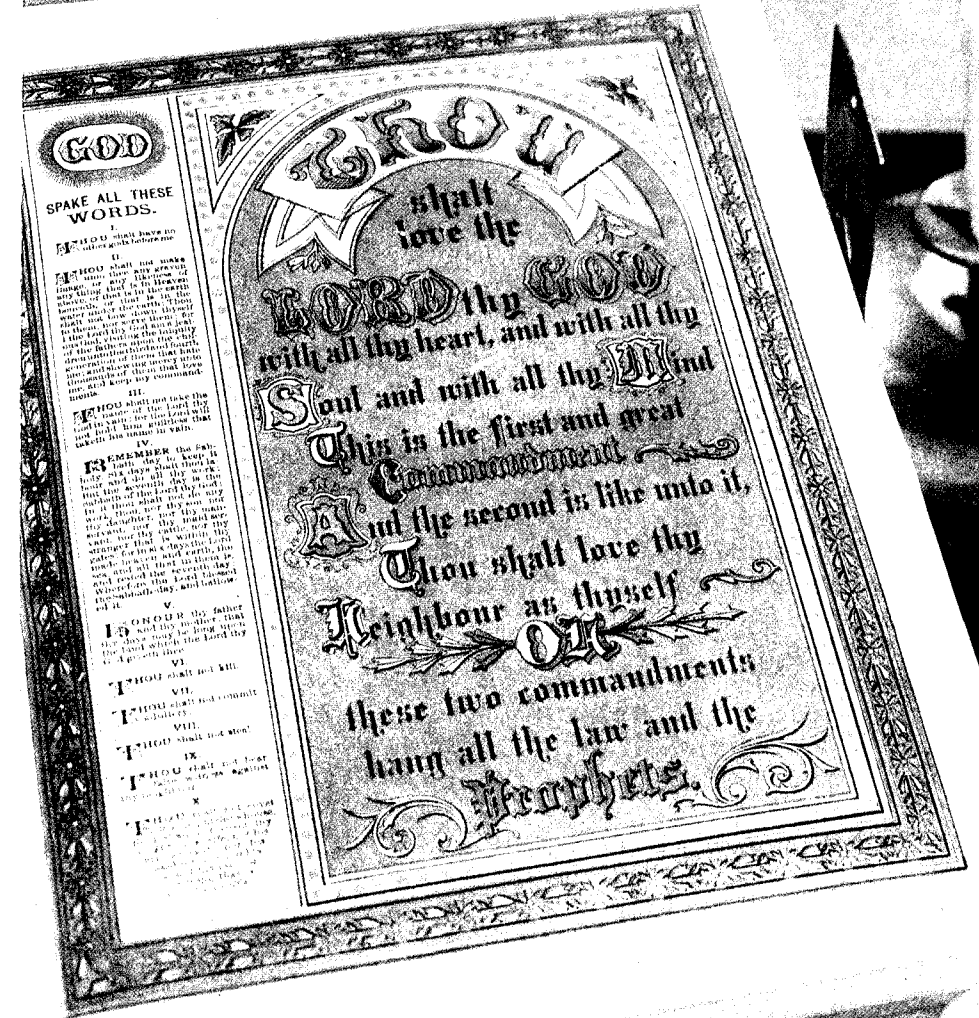 GOD
SPAKE ALL THESE
WORDS.
I.
THOU shalt have no
other gods before me
II.
THOU shalt not make
unto thee any graven
image, or any likeness of
any thing that is in Heaven
above, or that is in the
beneath, or that is in the
water under the earth. Thou
shalt not bow down thyself
to them, nor serve them: for
I the Lord thy God am a jeal-
ous God, visiting the iniquity
of the fathers upon the
generation of them that hate
me; and shewing mercy unto
thousands of them that love
me, and keep my command-
ments.
III.
THOU shalt not take the
name of the Lord thy
God in vain: for the Lord will
not hold him guiltless that
taketh his name in vain.
IV.
REMEMBER the Sab-
bath day to keep it
holy. Six days shalt thou la-
bour and do all thy work:
but the seventh day is the
sabbath of the Lord thy God:
in it thou shalt not do any
work, thou, nor thy son, nor
thy daughter, nor thy man-
servant, nor thy maid ser-
vant, nor thy cattle, nor thy
stranger that is within thy
gates: for in 6 days the Lord
made heaven and earth, the
sea, and all that in them is,
and rested the seventh day:
Wherefore the Lord blessed
the sabbath-day, and hallow-
ed it.
V.
HONOUR thy father
and thy mother: that
thy days may be long upon
the land which the Lord thy
God giveth thee.
VI.
THOU shalt not kill.
VII.
THOU shalt not commit
adultery.
VIII.
THOU shalt not steal.
IX.
THOU shalt not bear
false witness against
thy neighbour.
X.
THOU shalt not covet
Thou
shalt
love the
LORD thy GOD
with all thy heart, and with all thy
Soul and with all thy Mind
This is the first and great
Commandment
And the second is like unto it,
Thou shalt love thy
Neighbour as thyself
ON
these two commandments
hang all the law and the
Prophets.